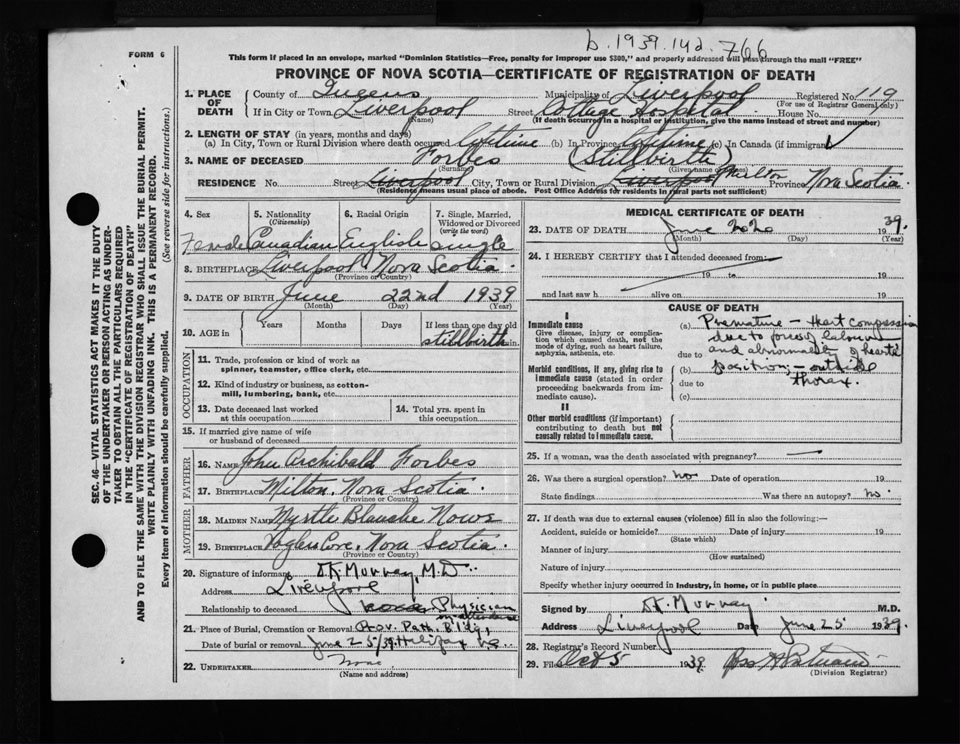 b. 1939. 142. 766
FORM 6
This form if placed in an envelope, marked "Dominion Statistics—Free, penalty for improper use $300," and properly addressed will pass through the mail "FREE"
PROVINCE OF NOVA SCOTIA—CERTIFICATE OF REGISTRATION OF DEATH
1. PLACE OF DEATH County of Queens Municipality of Liverpool Registered No. 119
(For use of Registrar General only)
If in City or Town Liverpool Street Cottage Hospital House No.
(Name) (If death occurred in a hospital or institution, give the name instead of street and number)
2. LENGTH OF STAY (in years, months and days)
(a) In City, Town or Rural Division where death occurred lifetime (b) In Province lifetime (c) In Canada (if immigrant)
3. NAME OF DECEASED Forbes (Stillbirth)
(Surname) (Given name or names)
RESIDENCE No. Street Liverpool City, Town or Rural Division Liverpool Milton Province Nova Scotia.
(Residence means usual place of abode. Post Office Address for residents in rural parts not sufficient)
4. Sex 5. Nationality (Citizenship) 6. Racial Origin 7. Single, Married, Widowed or Divorced (write the word)
Female Canadian English single
8. BIRTHPLACE Liverpool Nova Scotia.
(Province or Country)
9. DATE OF BIRTH June 22nd 1939
(Month) (Day) (Year)
10. AGE in Years Months Days If less than one day old
stillbirth
OCCUPATION
11. Trade, profession or kind of work as spinner, teamster, office clerk, etc.
12. Kind of industry or business, as cotton-mill, lumbering, bank, etc.
13. Date deceased last worked at this occupation
14. Total yrs. spent in this occupation
15. If married give name of wife or husband of deceased
FATHER
16. NAME John Archibald Forbes
17. BIRTHPLACE Milton, Nova Scotia.
(Province or Country)
MOTHER
18. MAIDEN NAME Myrtle Blanche Nows
19. BIRTHPLACE Voglers Cove, Nova Scotia.
(Province or Country)
20. Signature of informant Murray, M.D.
Address Liverpool
Relationship to deceased Physician in attendance
21. Place of Burial, Cremation or Removal Prov. Path. Bldg,
Date of burial or removal June 25/39 Halifax N.S.
22. UNDERTAKER None
(Name and address)
MEDICAL CERTIFICATE OF DEATH
23. DATE OF DEATH June 22 1939.
(Month) (Day) (Year)
24. I HEREBY CERTIFY that I attended deceased from:
19 to 19
and last saw h alive on 19
CAUSE OF DEATH
I
Immediate cause
Give disease, injury or complication which caused death, not the mode of dying, such as heart failure, asphyxia, asthenia, etc.
Morbid conditions, if any, giving rise to immediate cause (stated in order proceeding backwards from immediate cause).
II
Other morbid conditions (if important) contributing to death but not causally related to immediate cause.
(a) Premature - Heart compression
due to force of labour
due to and abnormality of heart's
(b) position; - outside
due to thorax.
(c)
25. If a woman, was the death associated with pregnancy?
26. Was there a surgical operation? no. Date of operation 19
State findings Was there an autopsy? no.
27. If death was due to external causes (violence) fill in also the following:—
Accident, suicide or homicide? Date of injury 19
(State which)
Manner of injury
(How sustained)
Nature of injury
Specify whether injury occurred in industry, in home, or in public place
Signed by Murray M.D.
Address Liverpool Date June 25 1939.
28. Registrar's Record Number
29. Filed Oct 5 1939
(Division Registrar)
SEC. 46—VITAL STATISTICS ACT MAKES IT THE DUTY OF THE UNDERTAKER OR PERSON ACTING AS UNDERTAKER TO OBTAIN ALL THE PARTICULARS REQUIRED IN THE "CERTIFICATE OF REGISTRATION OF DEATH" AND TO FILE THE SAME WITH THE DIVISION REGISTRAR WHO SHALL ISSUE THE BURIAL PERMIT.
WRITE PLAINLY WITH UNFADING INK. THIS IS A PERMANENT RECORD.
Every item of information should be carefully supplied. (See reverse side for instructions.)